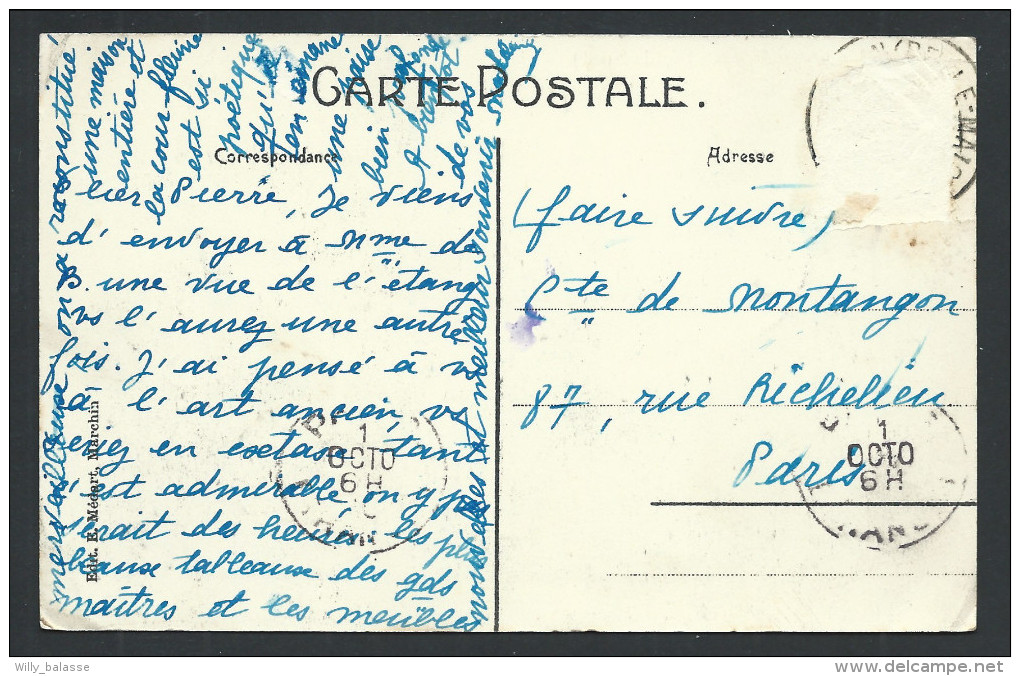 CARTE POSTALE.
Correspondance
Adresse
cher Pierre, Je viens
d'envoyer à Mme de
B. une vue de l'étang
vs l'aurez une autre
fois. J'ai pensé à vs
à l'art ancien, vs
seriez en extase tant
c'est admirable on y pas
serait des heures les plus
beaux tableaux des gds
maîtres et les meubles
merveilleux on a reconstitué
une maison
entière et
la cour fleurie
est si
poétique
qu'on
en
une
bien
A bientôt
de vos
nouvelles et meilleur souvenir
(faire suivre)
Cte de Montangon
87, rue Richelieu
Paris
1
OCTO
6H
1
OCTO
6H
Edit. E. Médart, Marchin
Willy_balasse
www.delcampe.net